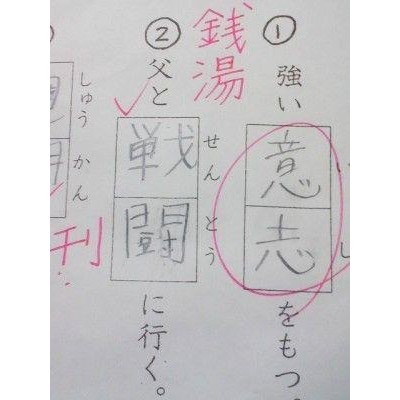 ① 強い意志をもつ。
いし
銭湯
② 父と戦闘に行く。
せんとう
しゅうかん
刊